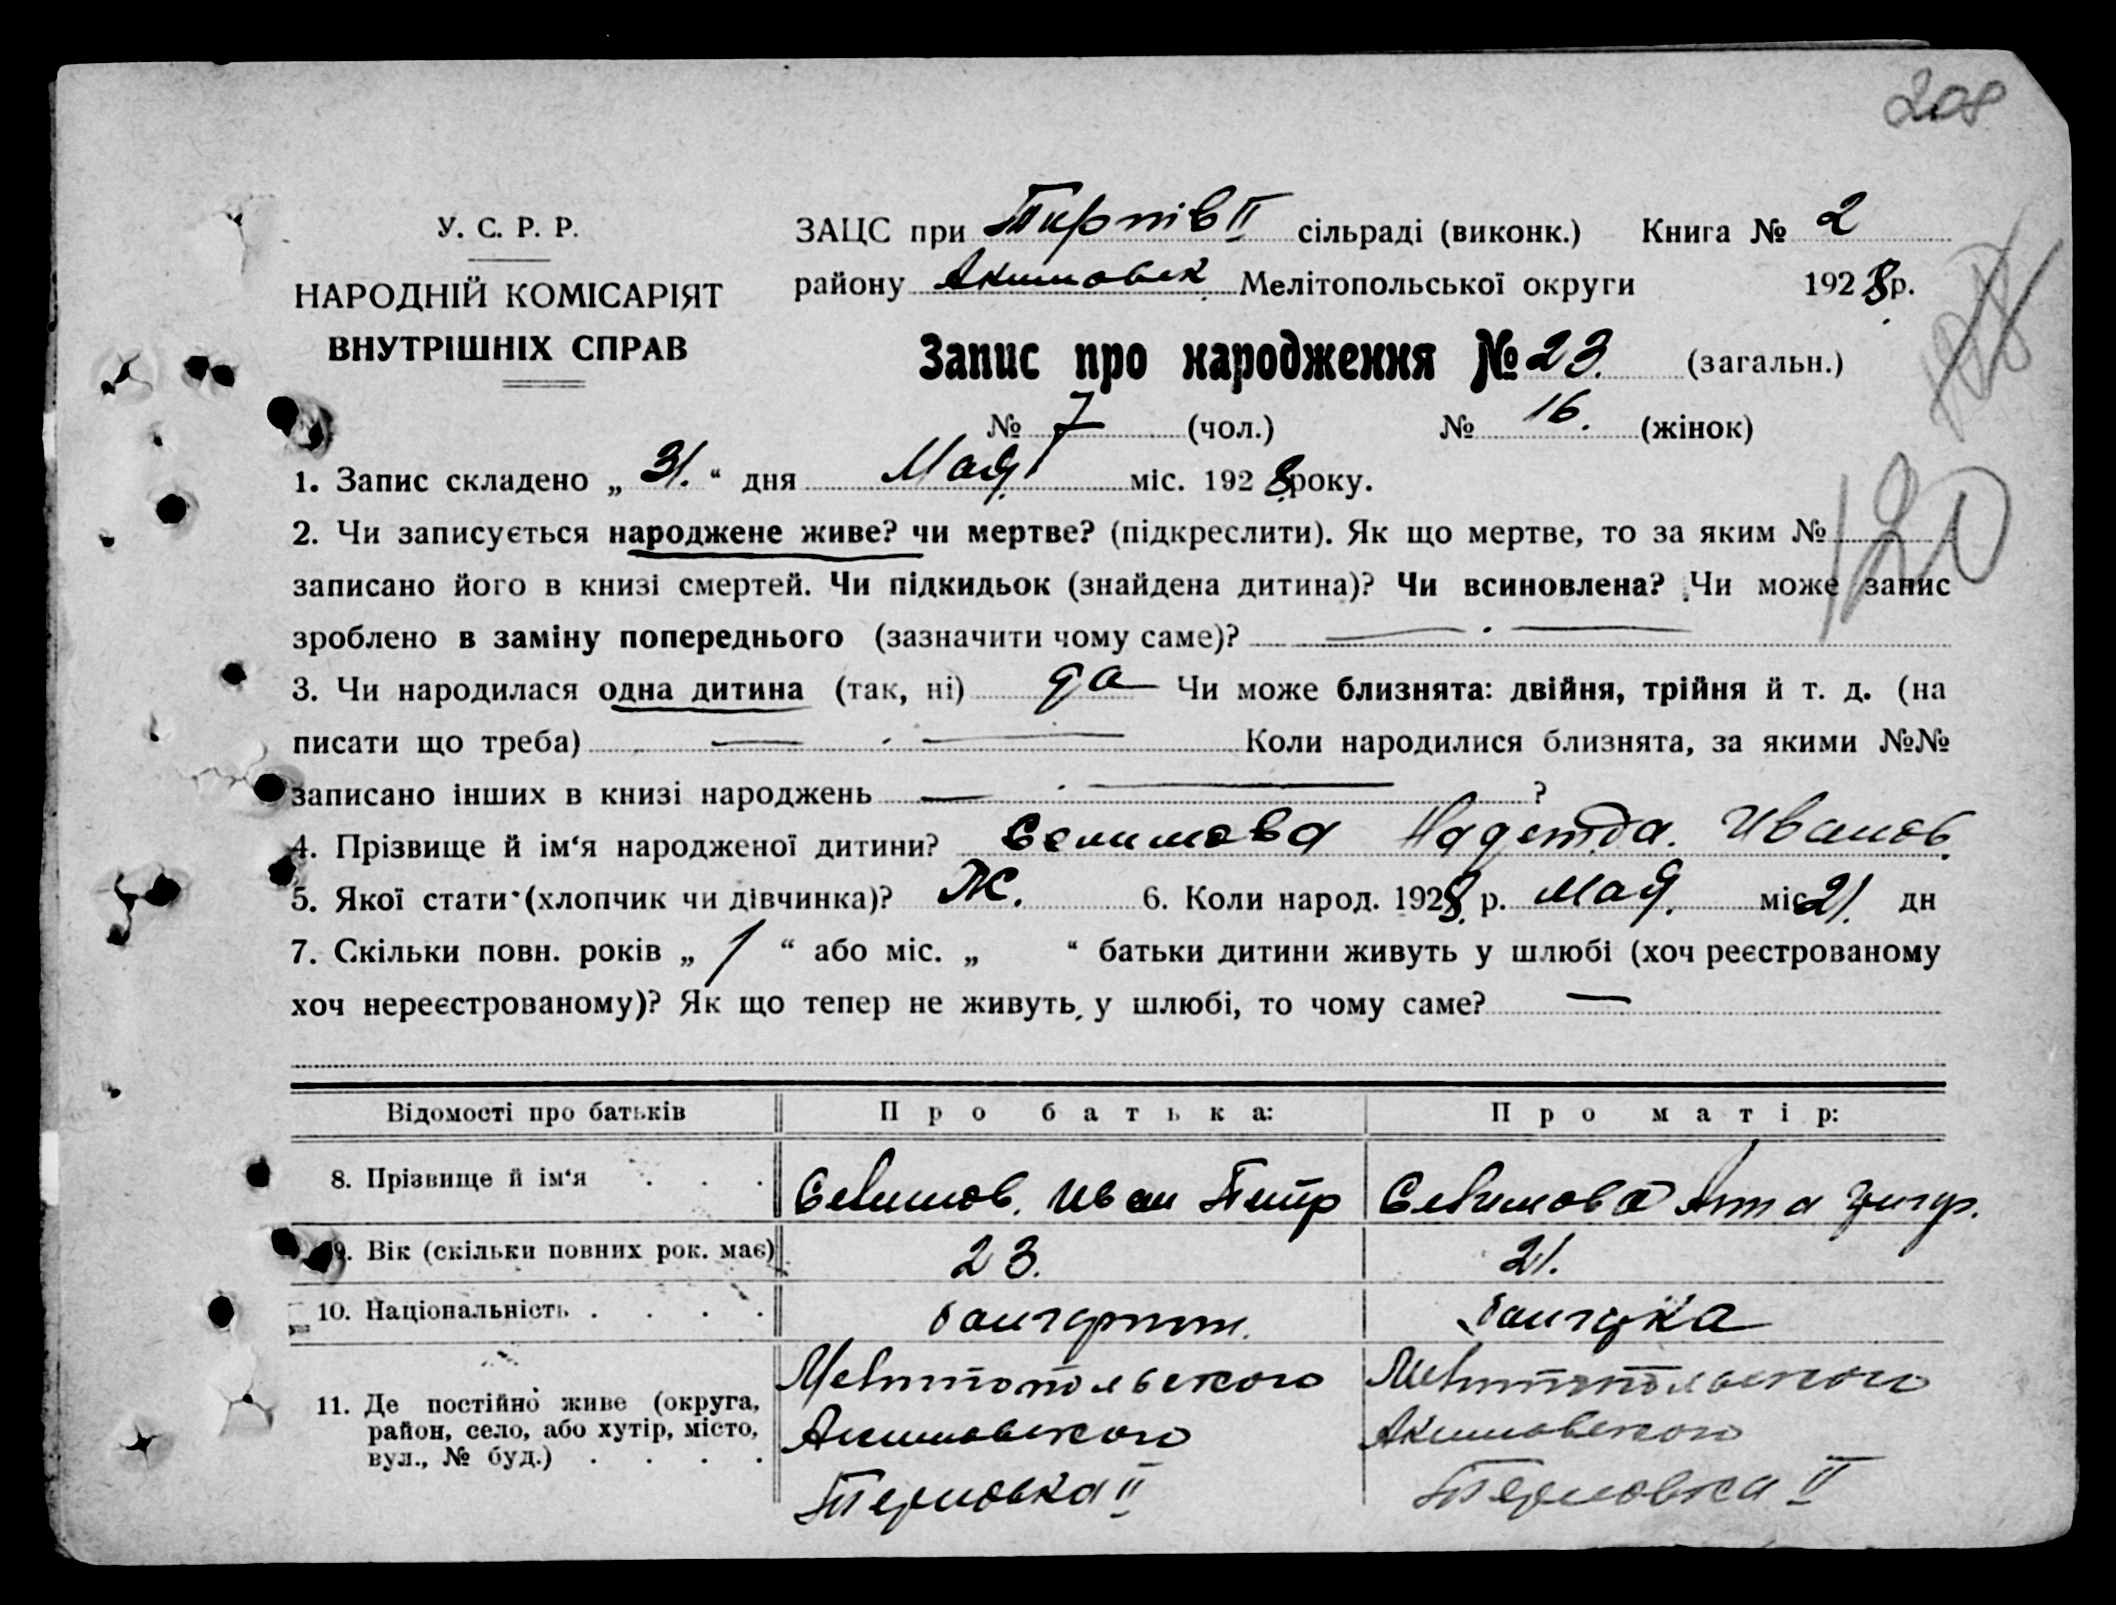 208
У. С. Р. Р.
НАРОДНІЙ КОМІСАРІЯТ
ВНУТРІШНІХ СПРАВ
ЗАЦС при Тирпів II сільраді (виконк.) Книга № 2
району Акимовск Мелітопольської округи 1928 р.
Запис про народження № 23. (загальн.)
№ 7 (чол.) № 16. (жінок)
120
1. Запис складено „ 31. “ дня Мая міс. 1928 року.
2. Чи записується народжене живе? чи мертве? (підкреслити). Як що мертве, то за яким №
записано його в книзі смертей. Чи підкидьок (знайдена дитина)? Чи всиновлена? Чи може запис
зроблено в заміну попереднього (зазначити чому саме)? —
3. Чи народилася одна дитина (так, ні) да Чи може близнята: двійня, трійня й т. д. (на
писати що треба) — Коли народилися близнята, за якими №№
записано інших в книзі народжень — ?
4. Прізвище й ім‘я народженої дитини? Надежда. Иванов.
5. Якої стати (хлопчик чи дівчинка)? Ж. 6. Коли народ. 1928. р. мая. міс 21. дн
7. Скільки повн. років „ 1 “ або міс. „ “ батьки дитини живуть у шлюбі (хоч реєстрованому
хоч нереєстрованому)? Як що тепер не живуть у шлюбі, то чому саме? —
Відомості про батьків Про батька: Про матір:
8. Прізвище й ім‘я . . . Иван Петр Анна Григр.
9. Вік (скільки повних рок. має) 23. 21.
10. Національність . . . .
11. Де постійно живе (округа,
район, село, або хутір, місто,
вул., № буд.) . . . .
Мелитопольского
Акимовского
Терновка II
Мелитопольского
Акимовского
Терновка II